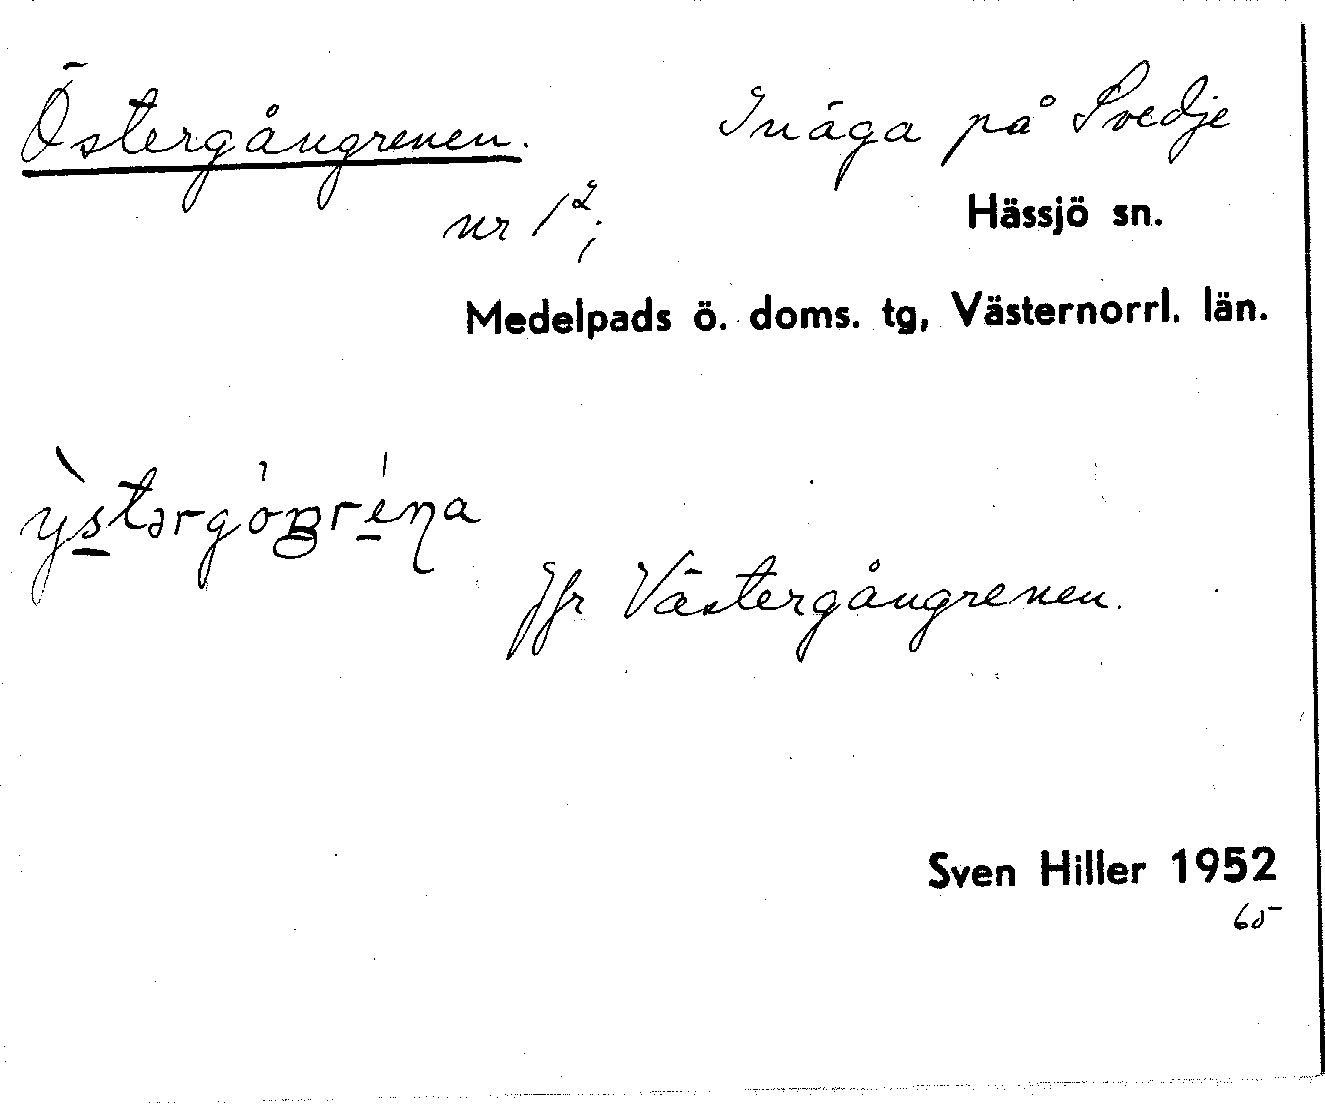 Östergångrenen. Inäga på Svedje
nr 1²; Hässjö sn.
Medelpads ö. doms. tg, Västernorrl. län.
Jfr Västergångrenen.
Sven Hiller 1952
65